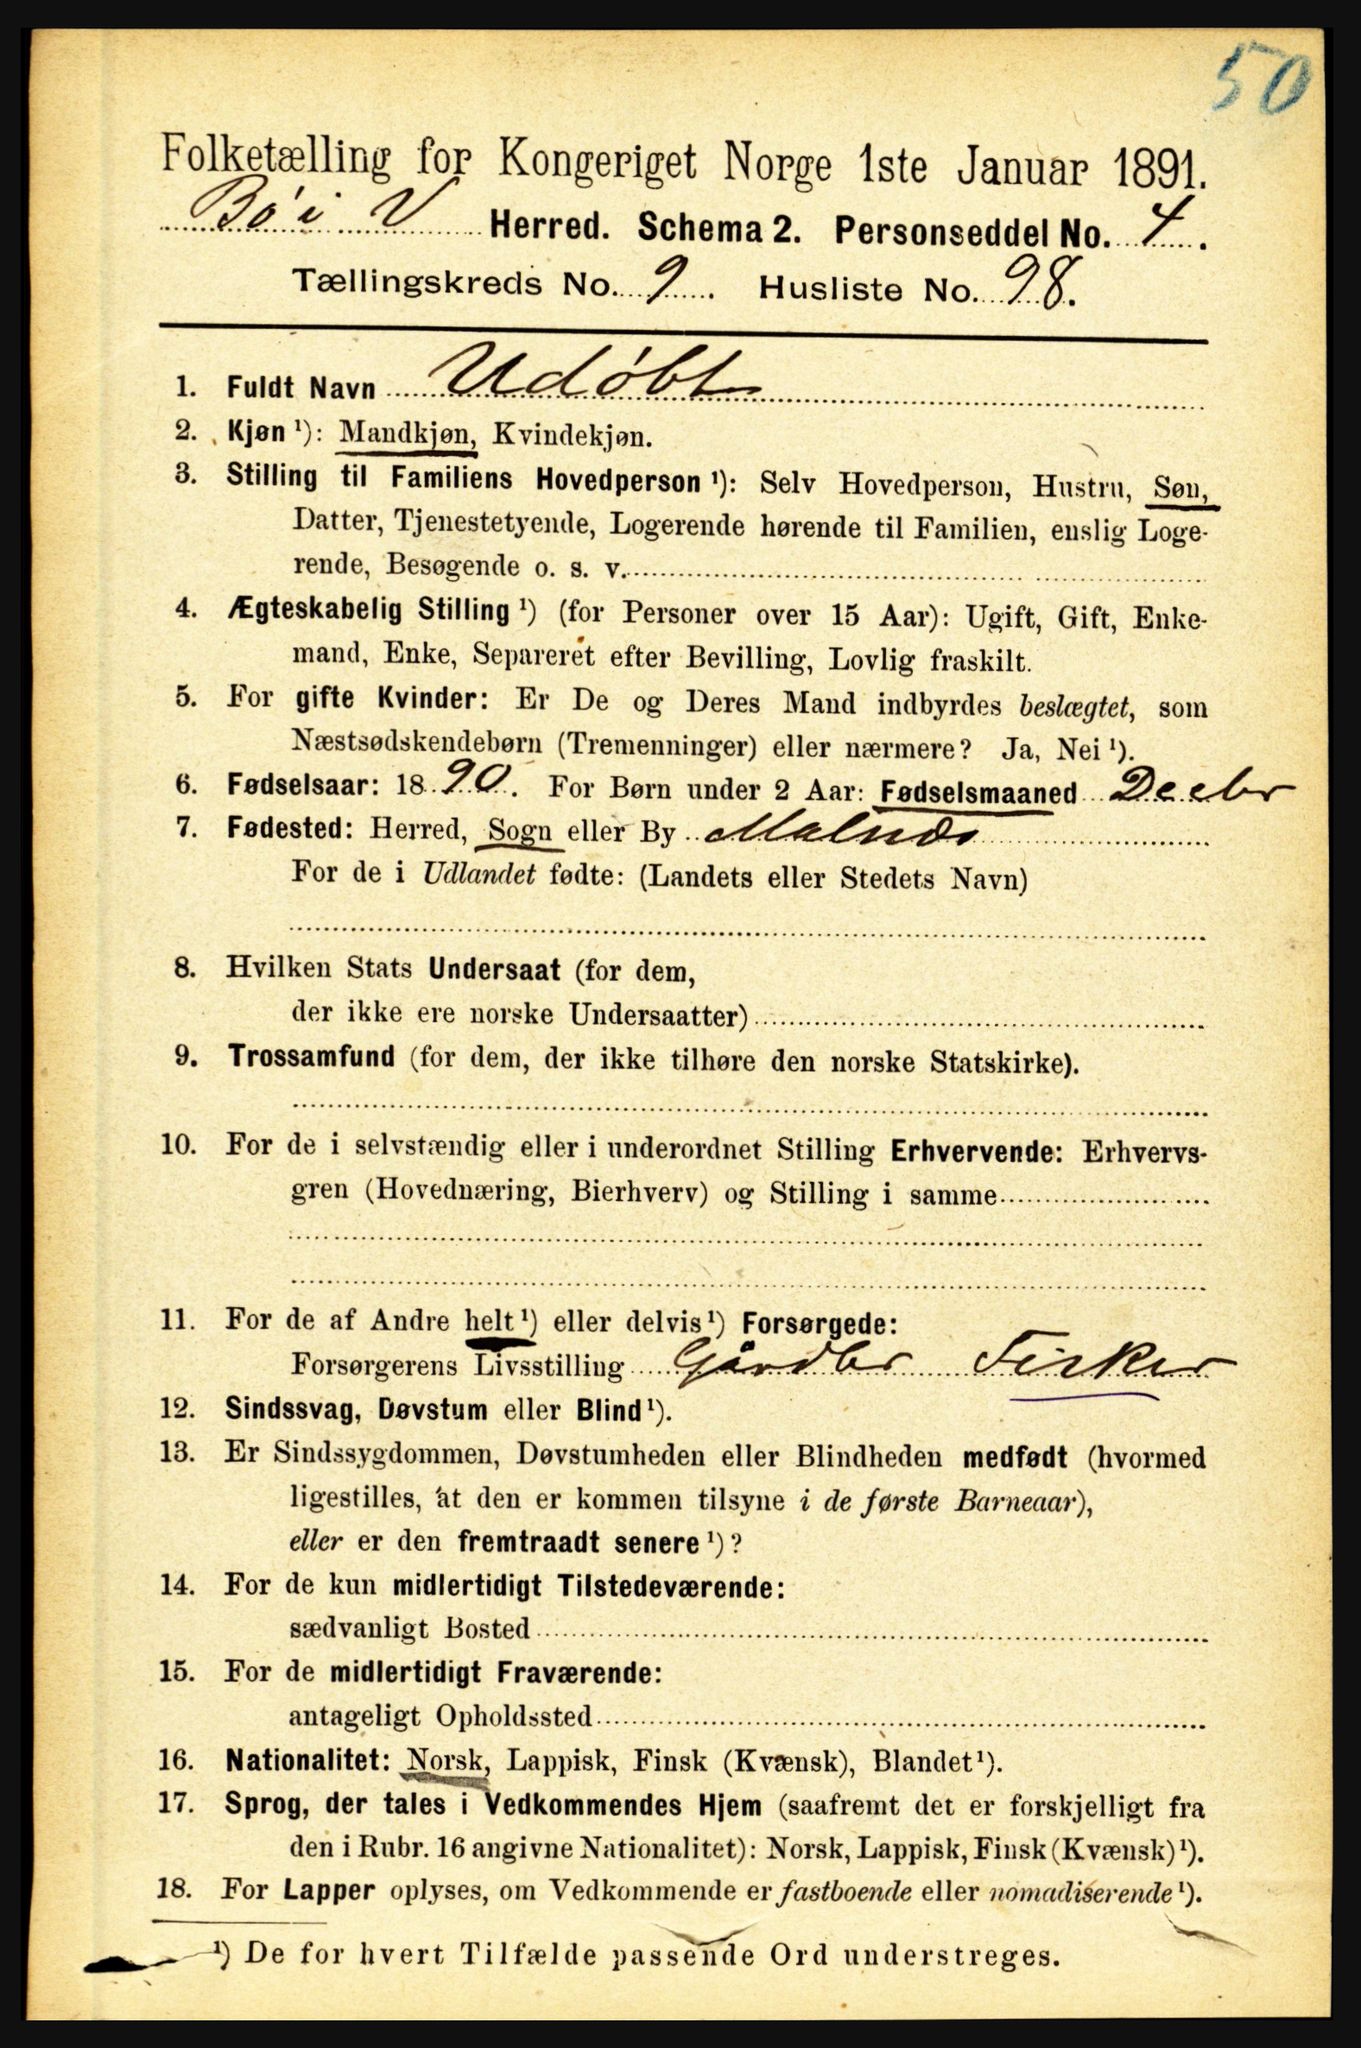 50
Folketælling for Kongeriget Norge 1ste Januar 1891.
Bø i V Herred. Schema 2. Personseddel No. 4.
Tællingskreds No. 9. Husliste No. 98.
1. Fuldt Navn Udøbt
2. Kjøn ¹): Mandkjøn, Kvindekjøn.
3. Stilling til Familiens Hovedperson ¹): Selv Hovedperson, Hustru, Søn,
Datter, Tjenestetyende, Logerende hørende til Familien, enslig Loge-
rende, Besøgende o. s. v.
4. Ægteskabelig Stilling ¹) (for Personer over 15 Aar): Ugift, Gift, Enke-
mand, Enke, Separeret efter Bevilling, Lovlig fraskilt.
5. For gifte Kvinder: Er De og Deres Mand indbyrdes beslægtet, som
Næstsødskendebørn (Tremenninger) eller nærmere? Ja, Nei ¹).
6. Fødselsaar: 1890. For Børn under 2 Aar: Fødselsmaaned Decbr
7. Fødested: Herred, Sogn eller By Malnæs
For de i Udlandet fødte: (Landets eller Stedets Navn)
8. Hvilken Stats Undersaat (for dem,
der ikke ere norske Undersaatter)
9. Trossamfund (for dem, der ikke tilhøre den norske Statskirke).
10. For de i selvstændig eller i underordnet Stilling Erhvervende: Erhvervs-
gren (Hovednæring, Bierhverv) og Stilling i samme
11. For de af Andre helt ¹) eller delvis ¹) Forsørgede:
Forsørgerens Livsstilling Gårdbr Fisker
12. Sindssvag, Døvstum eller Blind ¹).
13. Er Sindssygdommen, Døvstumheden eller Blindheden medfødt (hvormed
ligestilles, at den er kommen tilsyne i de første Barneaar),
eller er den fremtraadt senere ¹)?
14. For de kun midlertidigt Tilstedeværende:
sædvanligt Bosted
15. For de midlertidigt Fraværende:
antageligt Opholdssted
16. Nationalitet: Norsk, Lappisk, Finsk (Kvænsk), Blandet ¹).
17. Sprog, der tales i Vedkommendes Hjem (saafremt det er forskjelligt fra
den i Rubr. 16 angivne Nationalitet): Norsk, Lappisk, Finsk (Kvænsk) ¹).
18. For Lapper oplyses, om Vedkommende er fastboende eller nomadiserende ¹).
¹) De for hvert Tilfælde passende Ord understreges.